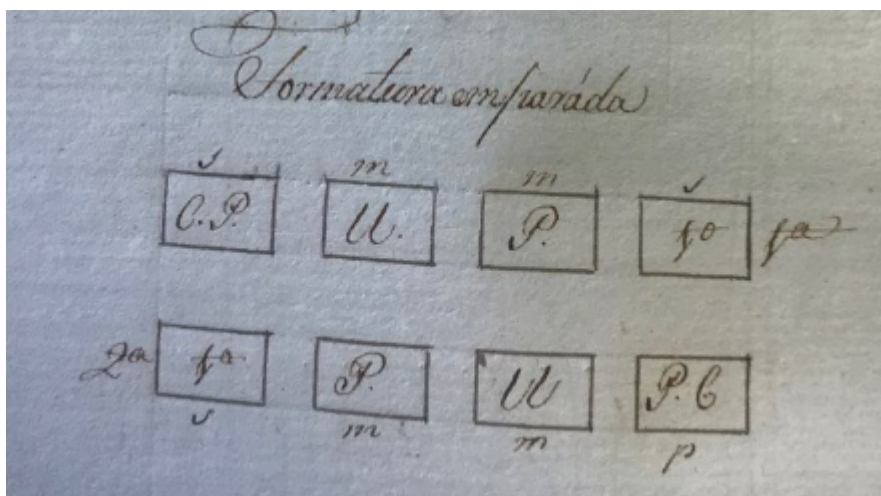 Formatura em paráda
s m m s
C. P. U. P. 1º 1ª
2ª 1ª P. U P. C
s m m p